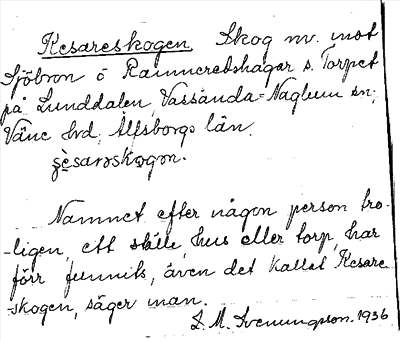 Kesareskogen. Skog nv. mot
Sjöbron ö Ramneredshagar s. Torpet
på Lunddalen, Vassända-Naglum sn,
Väne hd, Älfsborgs län.
Namnet efter någon person tro-
-ligen, ett ställe, hus eller torp, har
förr funnits, även det kallat Kesare-
-skogen, säger man.
L. M. Svenungson. 1936